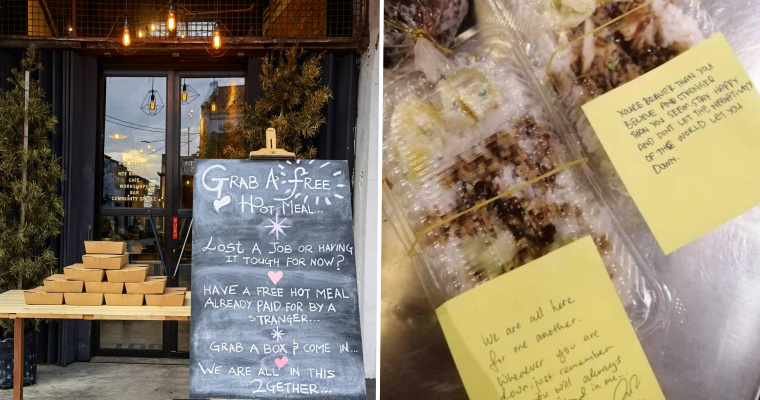 GRAB A FREE
HOT MEAL...
LOST A JOB OR HAVING
IT TOUGH FOR NOW?
HAVE A FREE HOT MEAL
ALREADY PAID FOR BY A
STRANGER...
GRAB A BOX & COME IN...
WE ARE ALL IN THIS
2GETHER...
CAFE
WORKSHOPS
BAR
COMMUNITY
YOU'RE BRAVER THAN YOU
BELIEVE AND STRONGER
THAN YOU SEEM. STAY HAPPY
AND DON'T LET THE NEGATIVITY
OF THE WORLD LET YOU
DOWN.
We are all here
for one another.
Whenever you are
down, just remember
you will always
in me...